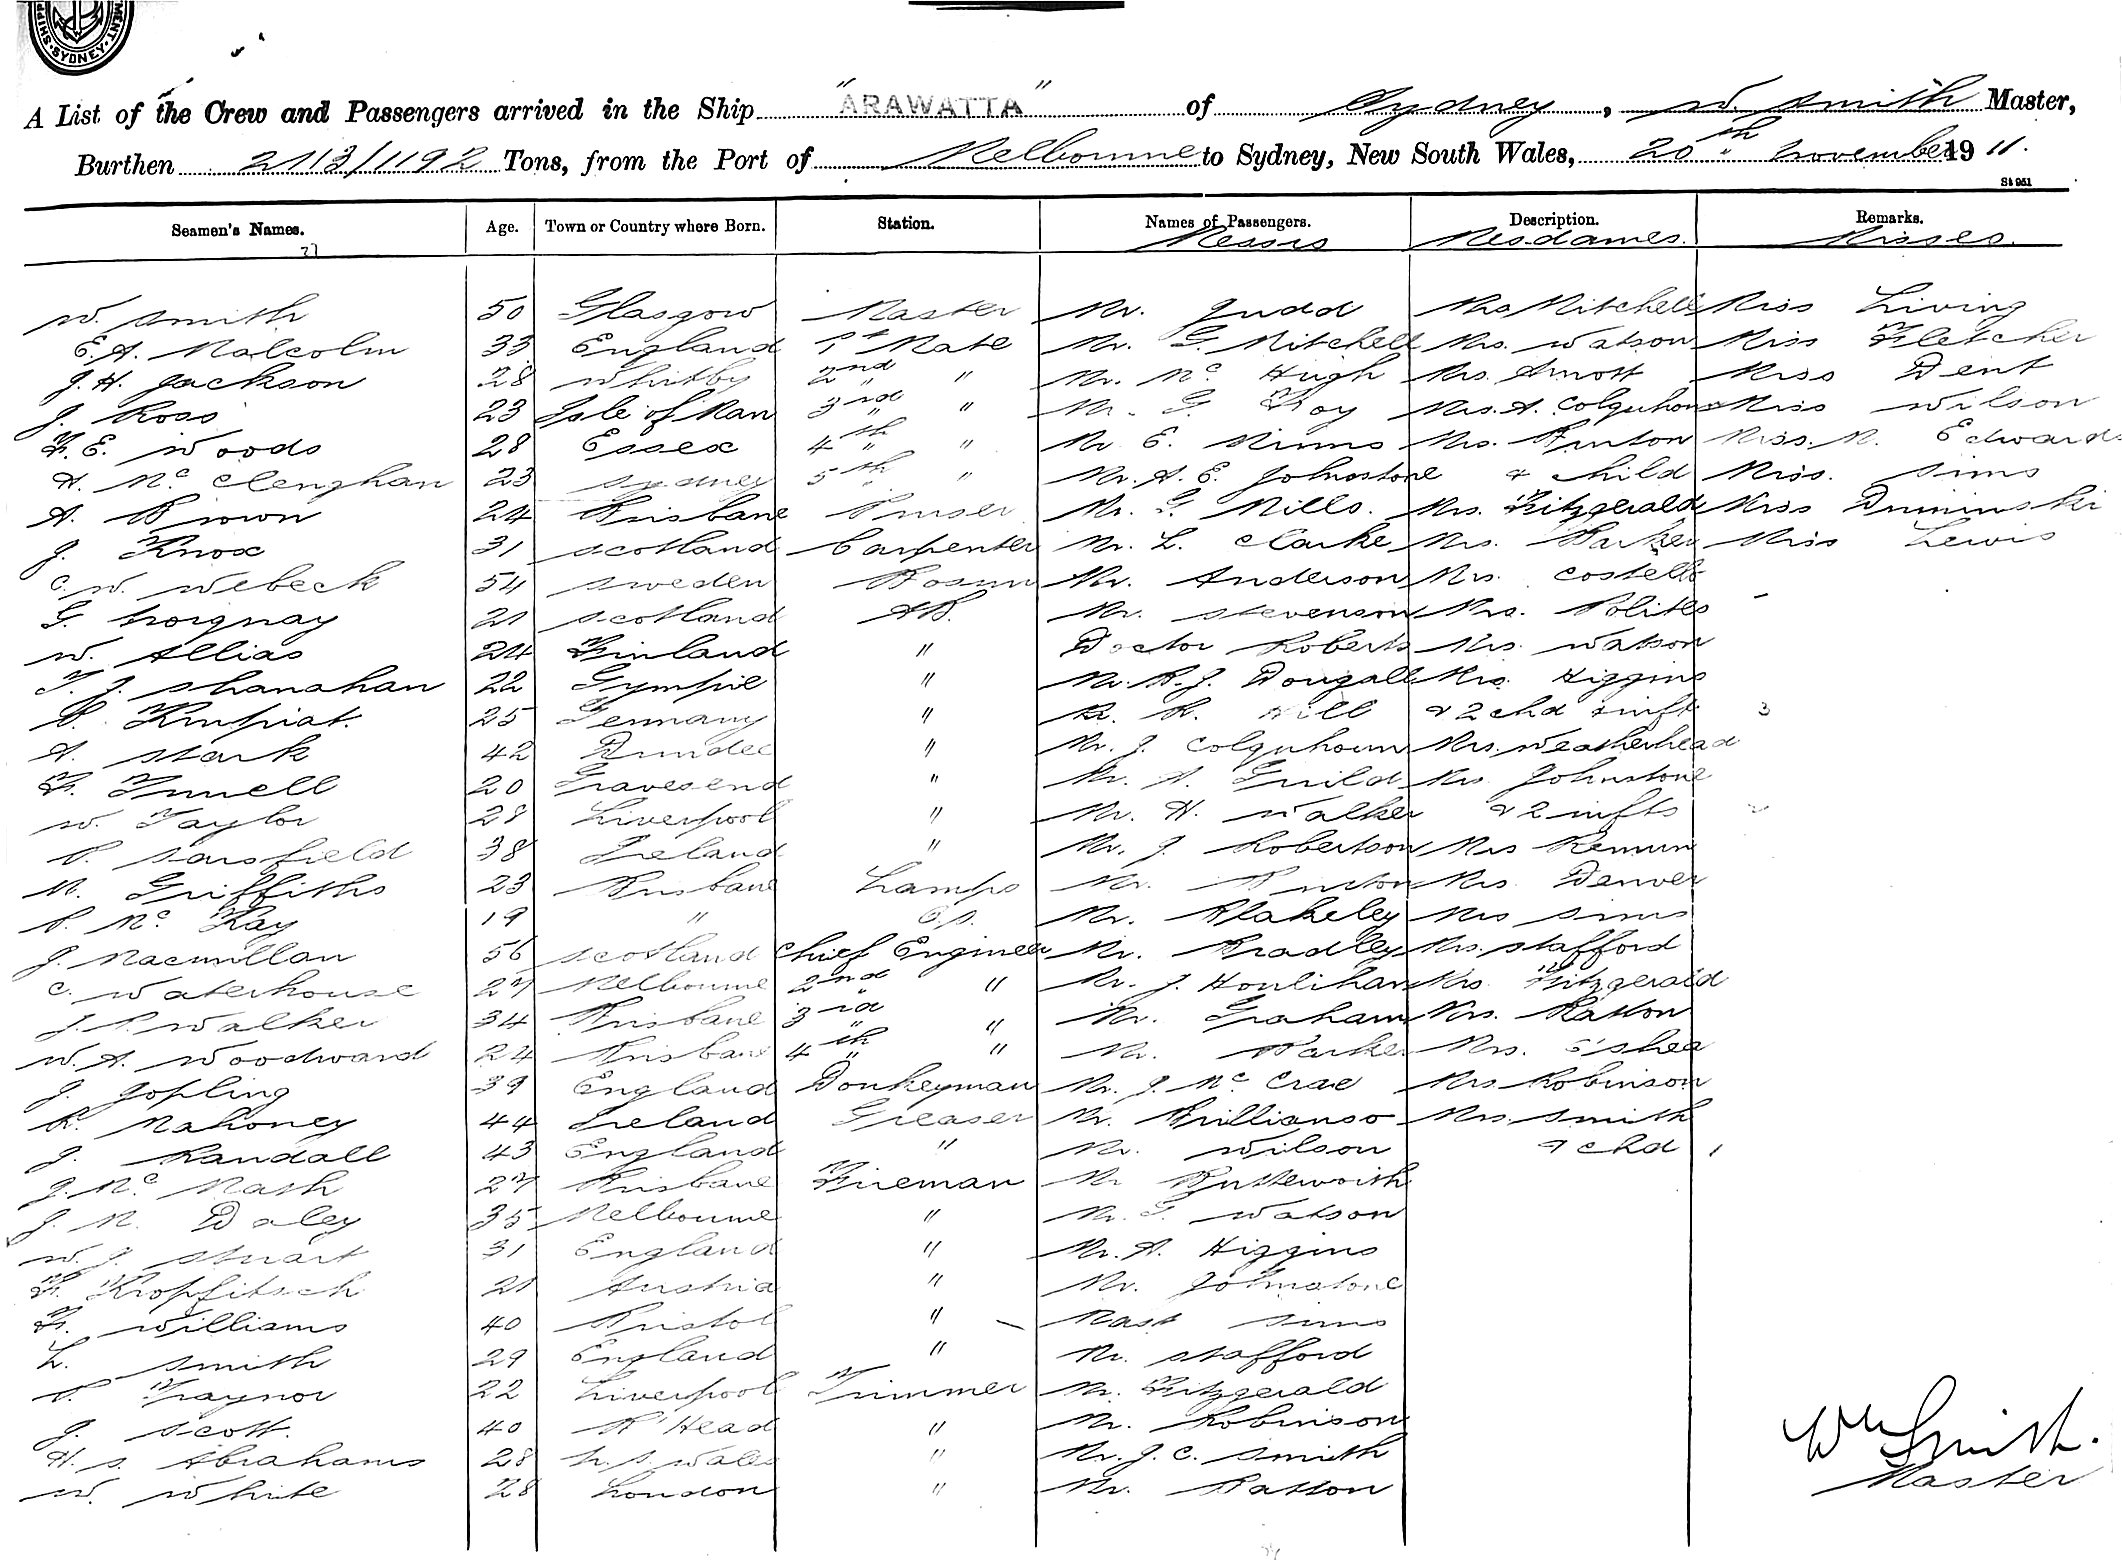 SYDNEY
A List of the Crew and Passengers arrived in the Ship "ARAWATTA" of Sydney, W. Smith Master,
Burthen 2113/1192 Tons, from the Port of Melbourne to Sydney, New South Wales, 20th November 1911.
St 951
Seamen's Names. Age. Town or Country where Born. Station. Names of Passengers. Description. Remarks.
Messrs Mesdames. Misses.
W. Smith 50 Glasgow Master Mr. Judd Mrs Mitchell Miss Living
E. A. Malcolm 33 England 1st Mate Mr. G. Mitchell Mrs. Watson Miss Fletcher
J. H. Jackson 28 Whitby 2nd " Mr. Mc Hugh Mrs. Arnott Miss Dent
J. Ross 23 Isle of Man 3rd " " Mr. G. Foy Mrs. A. Colquhoun Miss Wilson
F. E. Woods 28 Essex 4th " " Mr E. Mimms Mrs. Renton Miss. M. Edwards
A. Mc Clenghan 23 Sydney 5th " Mr. A. E. Johnstone & child Miss. Sims
A. Brown 24 Brisbane Purser Mr. G. Mills. Mrs. Fitzgerald Miss
J. Knox 31 Scotland Carpenter Mr. L. Clarke Mrs. Parker Miss Lewis
C. W. Webeck 54 Sweden Bosun Mr. Anderson Mrs. Costello
G. 21 Scotland AB. Mr. Stevenson Mrs. Polites
W. Allias 24 Finland " Doctor Roberts Mrs. Watson
T. J. Shanahan 22 Gympie " Mr. R. J. Dougall Mrs. Higgins
25 Germany " Mr. R. Hill & 2 chd & inft 3
A. Stark 42 Dundee " Mr. J. Colquhoun Mrs. Weatherhead
F. 20 Gravesend " Mr. A. Guild Mrs Johnstone
W. Taylor 28 Liverpool " Mr. H. Walker & 2 infts
P. Sarsfield 38 Ireland " Mr. J. Robertson Mrs
M. Griffiths 23 Brisbane Lamps Mr. Mrs. Denver
P. Mc Kay 19 " O.S. Mr. Blakeley Mrs Sims
J. Macmillan 56 Scotland Chief Engineer Mr. Bradley Mrs. Stafford
C. Waterhouse 27 Melbourne 2nd " " Mr. J. Houlihan Mrs. Fitzgerald
J. P. Walker 34 Brisbane 3rd " " Mr. Graham Mrs. Rasson
W. A. Woodward 24 Brisbane 4th " " Mr. Parker Mrs. O'Shea
J. Jopling 39 England Donkeyman Mr. J. Mc Crae Mrs Robinson
R. Mahoney 44 Ireland Greaser Mr. Mrs. Smith
J. Randall 43 England " Mr. Wilson & chd 1
J. Mc Nash 27 Brisbane Fireman Mr Butterworth
J. M. Daley 35 Melbourne " Mr. G. Watson
W. J. Stuart 31 England " Mr. A. Higgins
F. Kropfitsch 21 Austria " Mr. Johnstone
F. Williams 40 Bristol " Mast Sims
L. Smith 29 England " Mr. Stafford
P. Traynor 22 Liverpool Trimmer Mr. Fitzgerald
J. Scott. 40 B'Head " Mr. Robinson
H. S. Abrahams 28 N. S. Wales " Mr. J. C. Smith
W. White 28 London " Mr. Rasson
Wm Smith.
Master